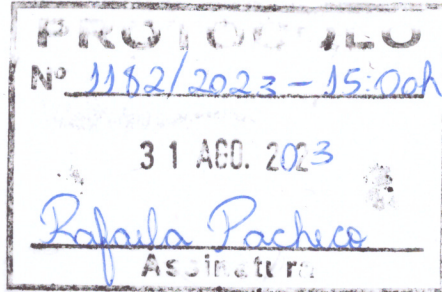 PROTOCOLO
Nº 1182/2023 - 15:00h
31 AGO. 2023
Rafaela Pacheco
Assinatura